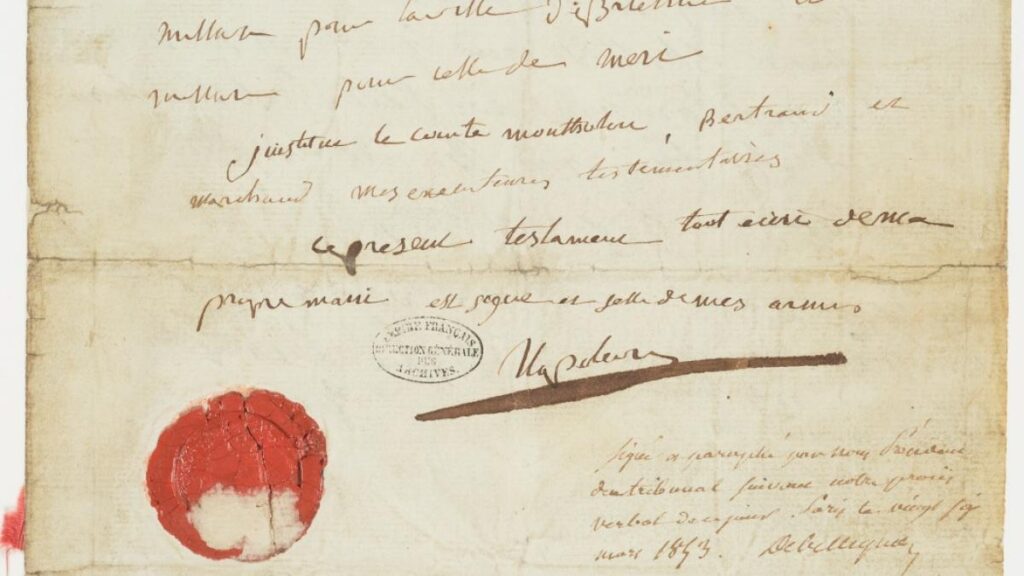 pour la ville de Brienne et
pour celle de meri
j'institue le comte montholon, Bertrand et
marchand mes executeures testementaires
ce present testament tout ecrit de ma
propre main est signé et sellé de mes armes
EMPIRE FRANÇAIS
DIRECTION GÉNÉRALE
DES
ARCHIVES.
Napoleon
signé et paraphé par nous Président
du tribunal suivant notre procès
verbal de ce jour. Paris le vingt six
mars 1853.